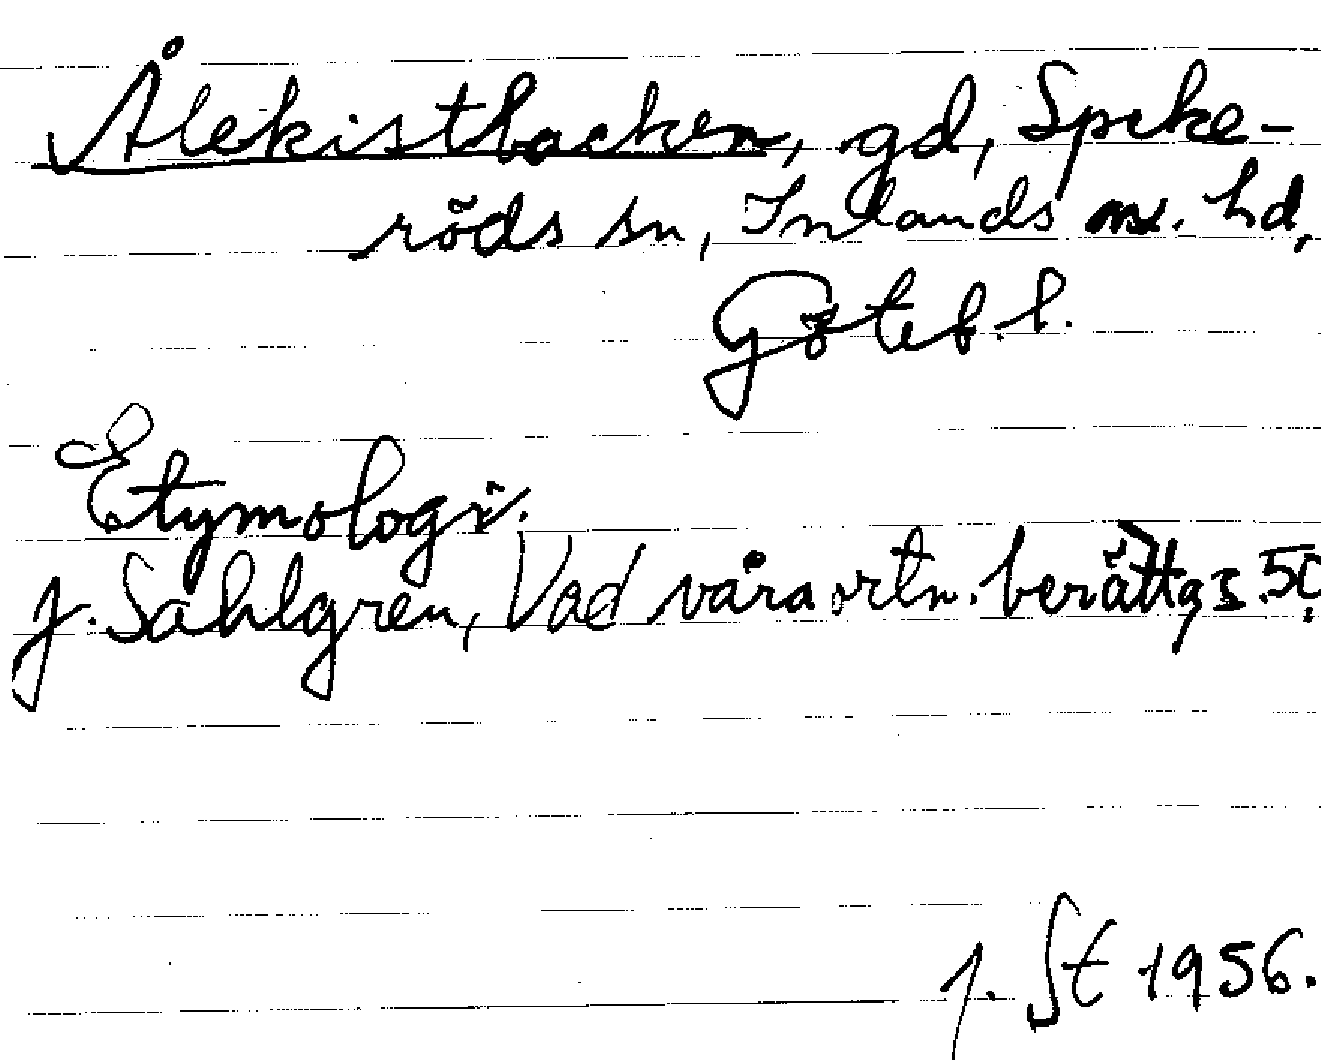 Ålekistbacken, gd, Speke-
röds sn, Inlands n. hd,
Göteb. l.
Etymologi.
J. Sahlgren, Vad våra ortn. berätta, s.
J. St 1956.